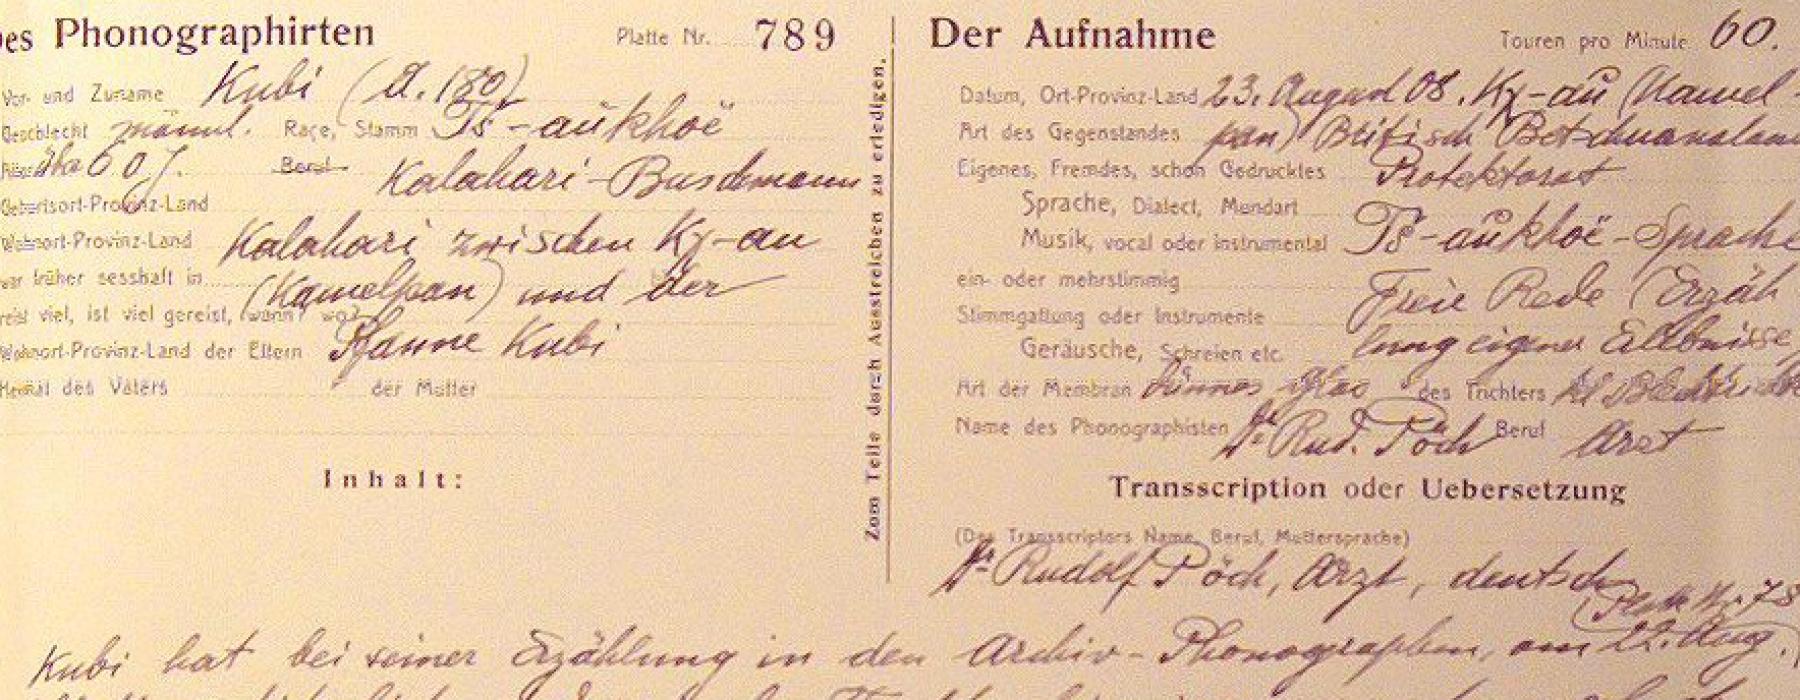 es Phonographirten Platte Nr. 789
Vor- und Zuname Kubi (A. 180)
Geschlecht männl. Raçe, Stamm Ts-aukhoë
60 J. Beruf Kalahari-Buschmann
Geburtsort-Provinz-Land
Wohnort-Provinz-Land Kalahari zwischen Ky-au
war früher sesshaft in (Kamelpan) und der
reist viel, ist viel gereist, wann? wo?
Wohnort-Provinz-Land der Eltern Pfanne Kubi
des Vaters der Mutter
Inhalt:
Zum Teile durch Ausstreichen zu erledigen.
Der Aufnahme Touren pro Minute 60.
Datum, Ort-Provinz-Land 23. August 08. Ky-au (Kamel-
Art des Gegenstandes pan) Britisch Betschuanalan
Eigenes, Fremdes, schon Gedrucktes Protektorat
Sprache, Dialect, Mundart
Musik, vocal oder instrumental Ts-aukhoë-Sprache
ein- oder mehrstimmig Freie Rede (Erzäh
Stimmgattung oder Instrumente
Geräusche, Schreien etc. lung eigener Erlebnisse
Art der Membran dünnes Glas des Trichters kl
Name des Phonographisten Dr Rud. Pöch Beruf Arzt
Transscription oder Uebersetzung
(Des Transscriptors Name, Beruf, Muttersprache)
Dr Rudolf Pöch, Arzt, deutsch
Platte Nr. 78
Kubi hat bei seiner Erzählung in den Archiv-Phonographen, am 22. Aug.